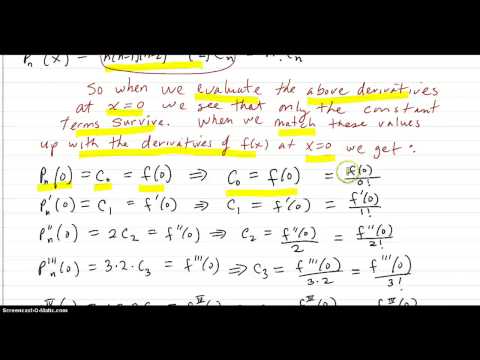 Pₙ⁽ⁿ⁾(x) = n(n-1)(n-2) ··· (2) Cₙ = n! Cₙ
So when we evaluate the above derivatives
at x=0 we see that only the constant
Terms Survive. When we match these values
up with the derivatives of f(x) at x=0 we get:
Pₙ(0) = C₀ = f(0) ⇒ C₀ = f(0) = f(0)/0!
Pₙ'(0) = C₁ = f'(0) ⇒ C₁ = f'(0) = f'(0)/1!
Pₙ''(0) = 2C₂ = f''(0) ⇒ C₂ = f''(0)/2 = f''(0)/2!
Pₙ'''(0) = 3·2·C₃ = f'''(0) ⇒ C₃ = f'''(0)/3·2 = f'''(0)/3!
Screencast-O-Matic.com